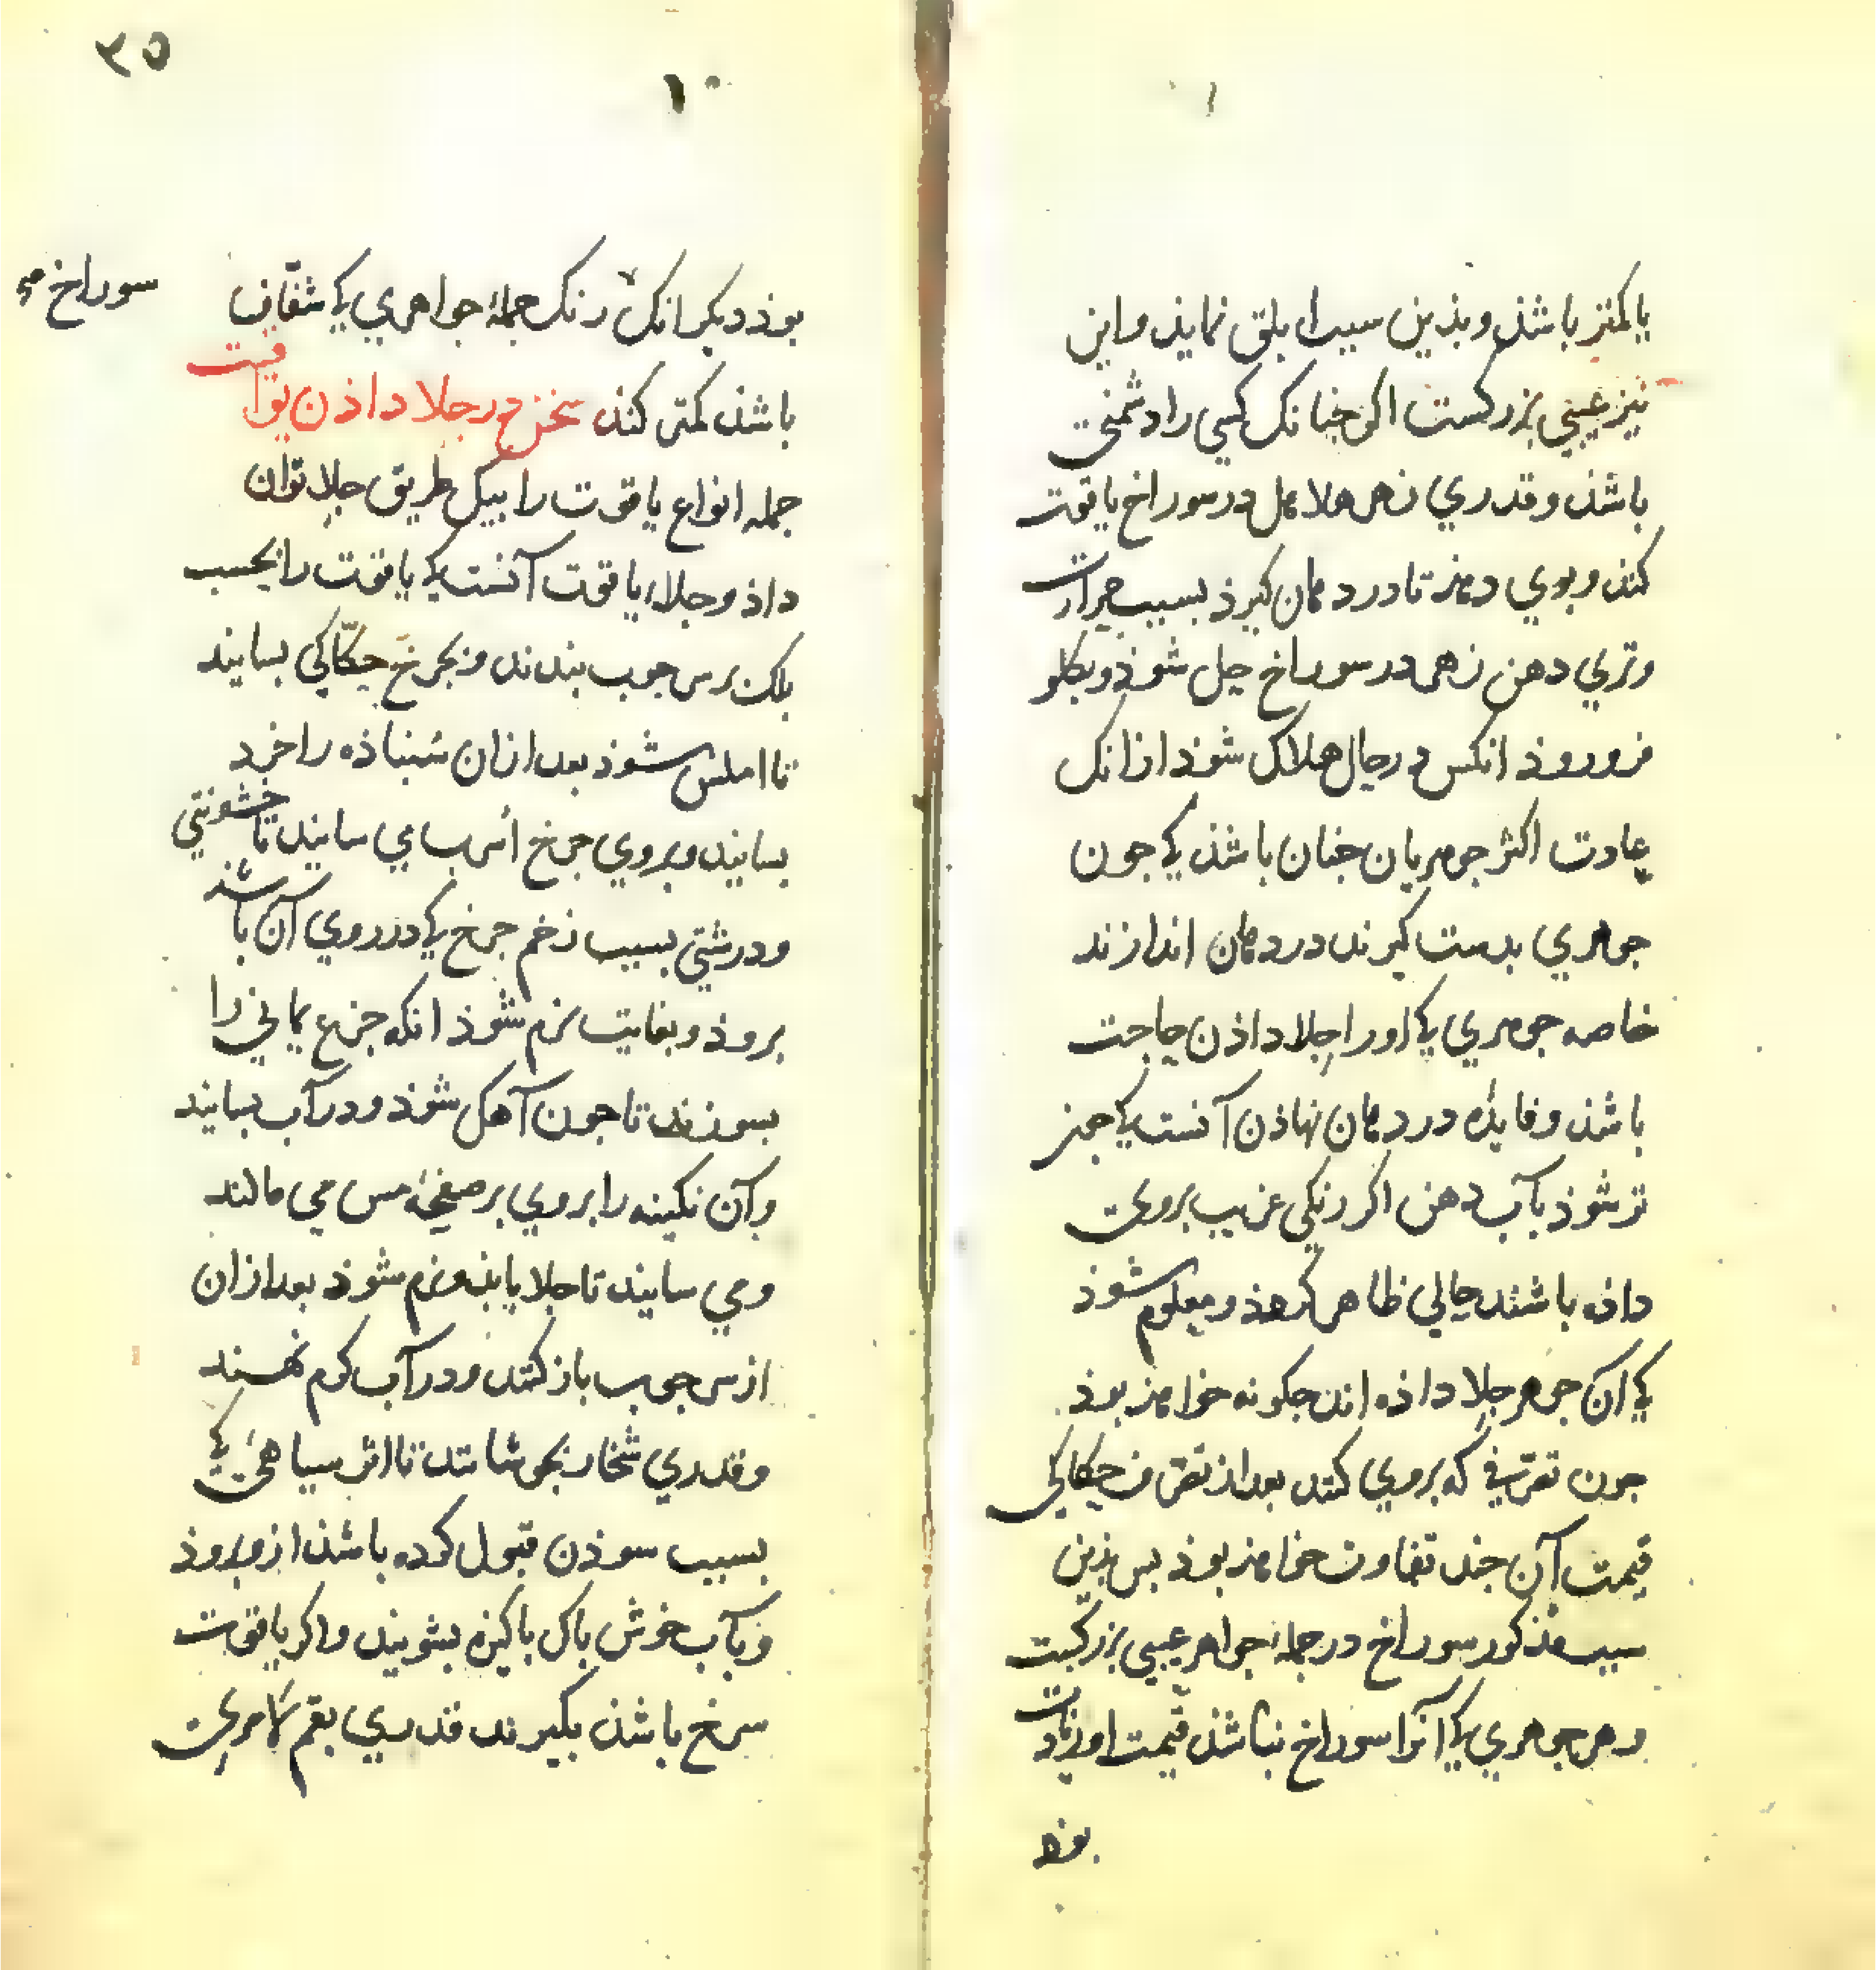 یا کمتر باشذ و بذین سبب ابلق نمایذ و این
نیز عیبی بزرکست اکر چنانک کسی را دشمنی
باشذ و قدری زهر هلاهل در سوراخ یاقوت
کند و بوی دهذ تا در دهان کیرذ بسبب حرارت
و تری دهن زهر در سوراخ حل شوذ و بکلو
فرو روذ انکس در حال هلاک شوذ از انک
عادت اکثر جوهریان جنان باشذ کی جون
جوهری بدست کیرند در دهان اندازند
خاصه جوهری کی او را جلا داذن حاجت
باشذ و فایده در دهان نهاذن آنست کی جون
تر شوذ بآب دهن اکر رنکی غریب بروی
داذه باشند حالی ظاهر کردذ و معلوم شوذ
کی آن جوهر جلا داذه اند جکونه خواهذ بوذ
جون تصرفی که بروی کنند بعد از تصرف حکاکی
قیمت آن جند تفاوت خواهذ بوذ بس بذین
سبب مذکور سوراخ در جمله جواهر عیبی بزرکست
و هر جوهری کی آنرا سوراخ نباشذ قیمت او زیادت
بوذ
۲۵
۱۰
بوذ دیکر انک رنک جمله جواهری کی شفاف
سوراخ
باشذ کمتر کند سخن در جلا داذن یواقیت
جمله انواع یاقوت را بیک طریق جلا توان
داذ و جلاء یاقوت آنست کی یاقوت را بجسب
بلک بر سر جوب بندند و بجرخ حکاکی بسایند
تا املس شوذ بعد از ان سنباذه را خرد
بسایند و بر روی جرخ اسرب می سایند تا خشونتی
و درشتی بسبب زخم جرخ کی در روی آن باشذ
بروذ و بغایت نرم شوذ انکه جزع یمانی را
بسوزند تا جون آهک شوذ و در آب بسایند
و آن نکینه را بروی بر صفیحه مس می مالند
و می سایند تا جلا یابذ و نرم شوذ بعد از ان
از سر جوب باز کنند و در آب کرم نهند
و قدری شخار بجوشانند تا اثر سیاهی کی
بسبب سوذن قبول کرده باشذ ازو بروذ
و بآب خوش باک باکیزه بشویند و اکر یاقوت
سرخ باشذ بکیرند قدری بقم کامری